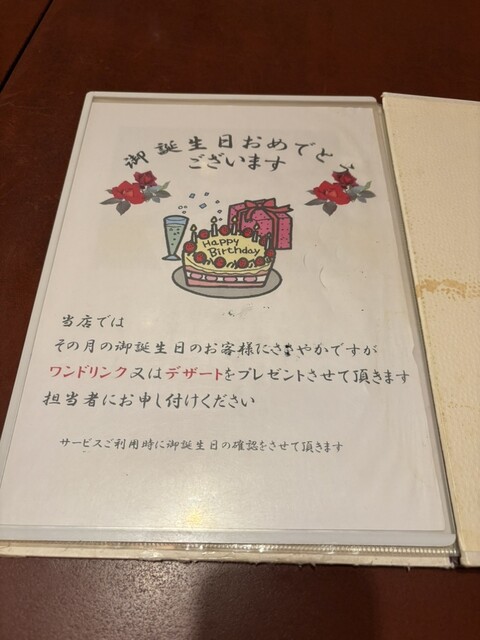 御誕生日おめでとう
ございます
Happy
Birthday
当店では
その月の御誕生日のお客様にささやかですが
ワンドリンク又はデザートをプレゼントさせて頂きます
担当者にお申し付けください
サービスご利用時に御誕生日の確認をさせて頂きます